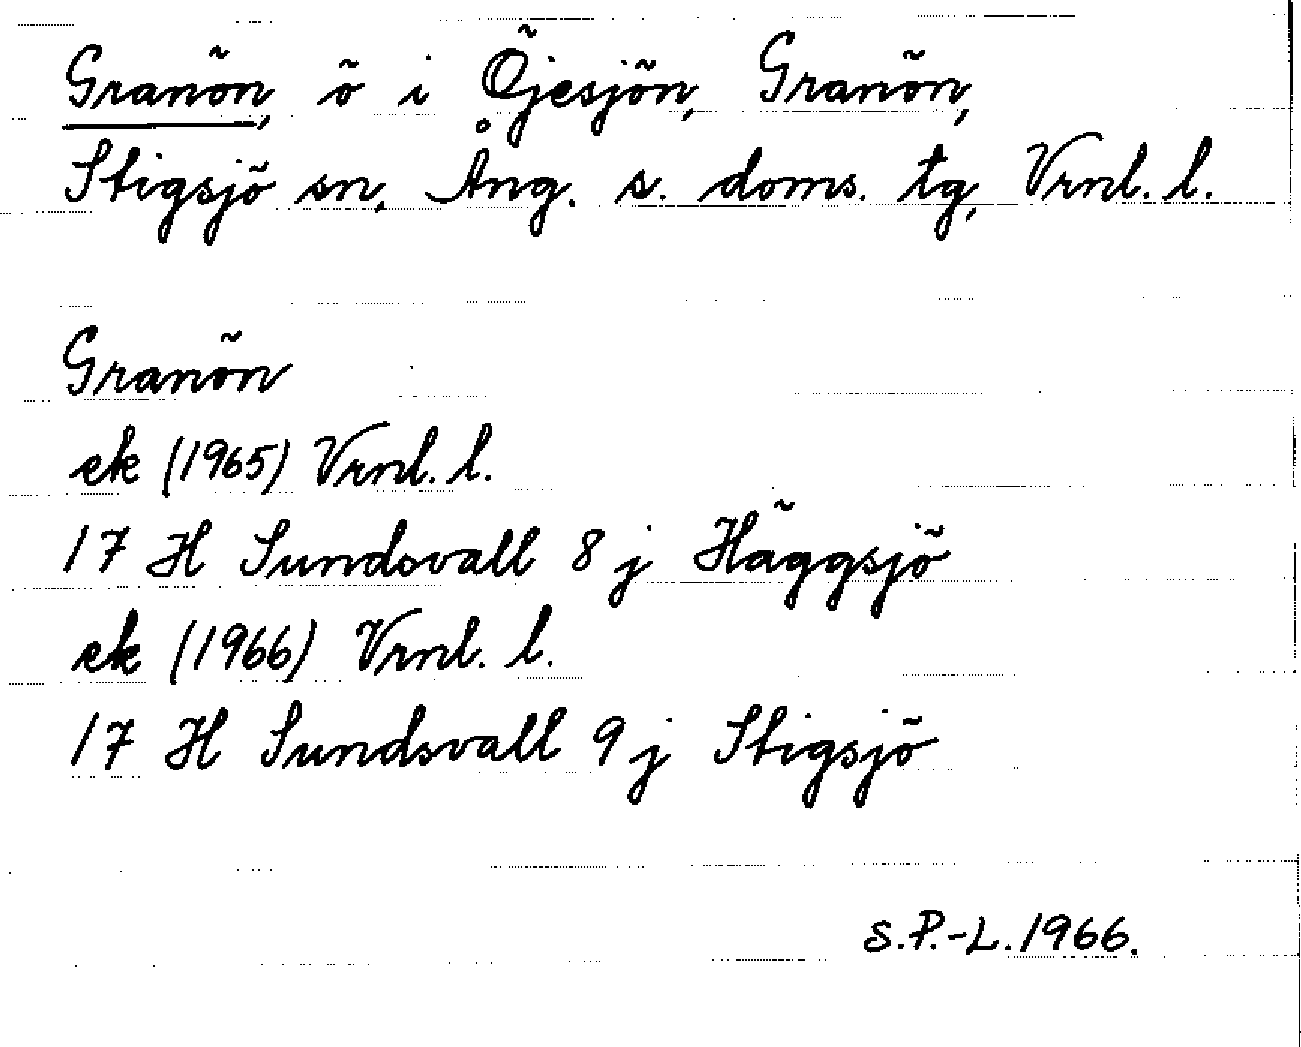 Granön, ö i Öjesjön, Granön,
Stigsjö sn, Ång. s. doms. tg, Vrnl. l.
Granön
ek (1965) Vrnl. l.
17 H Sundsvall 8 j Häggsjö
ek (1966) Vrnl. l.
17 H Sundsvall 9 j Stigsjö
S.P.-L. 1966.